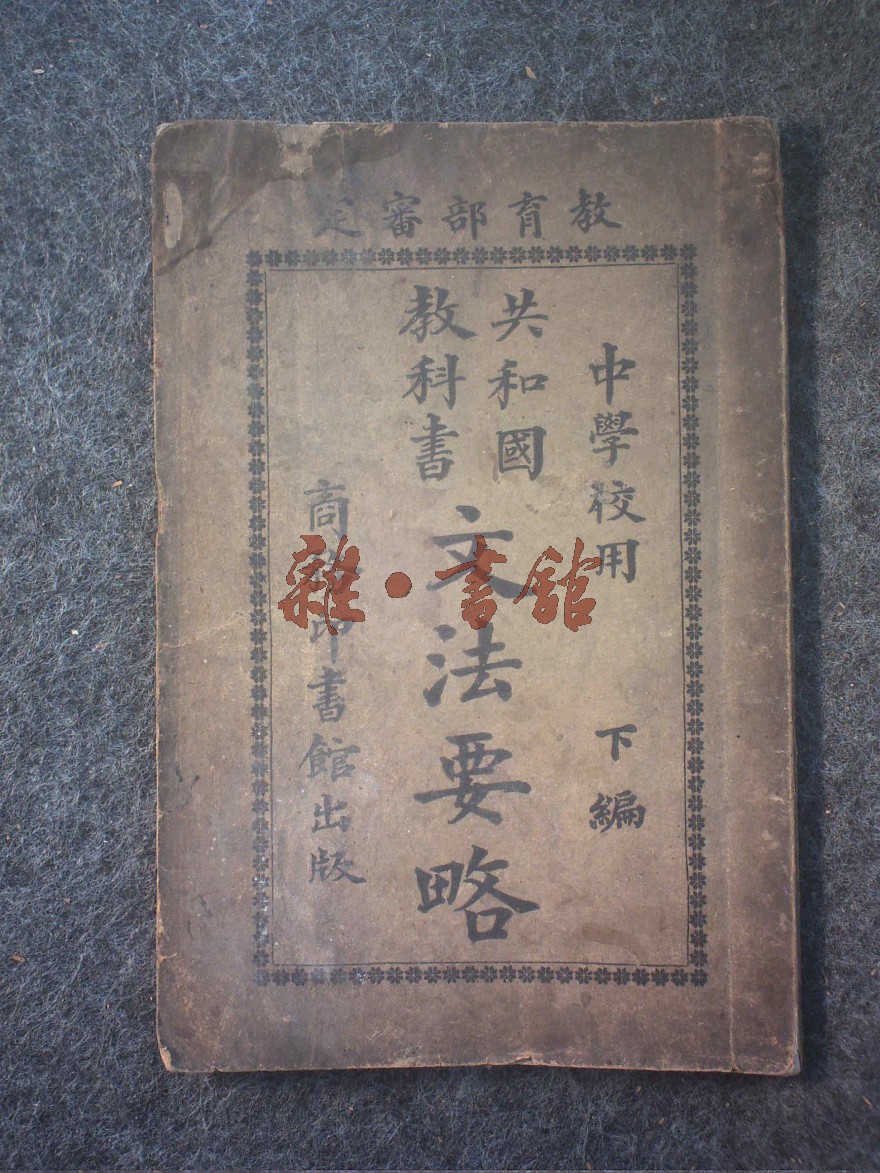 教育部審定
中學校用 下編
共和國
教科書
文法要略
商務印書館出版
雜·書館